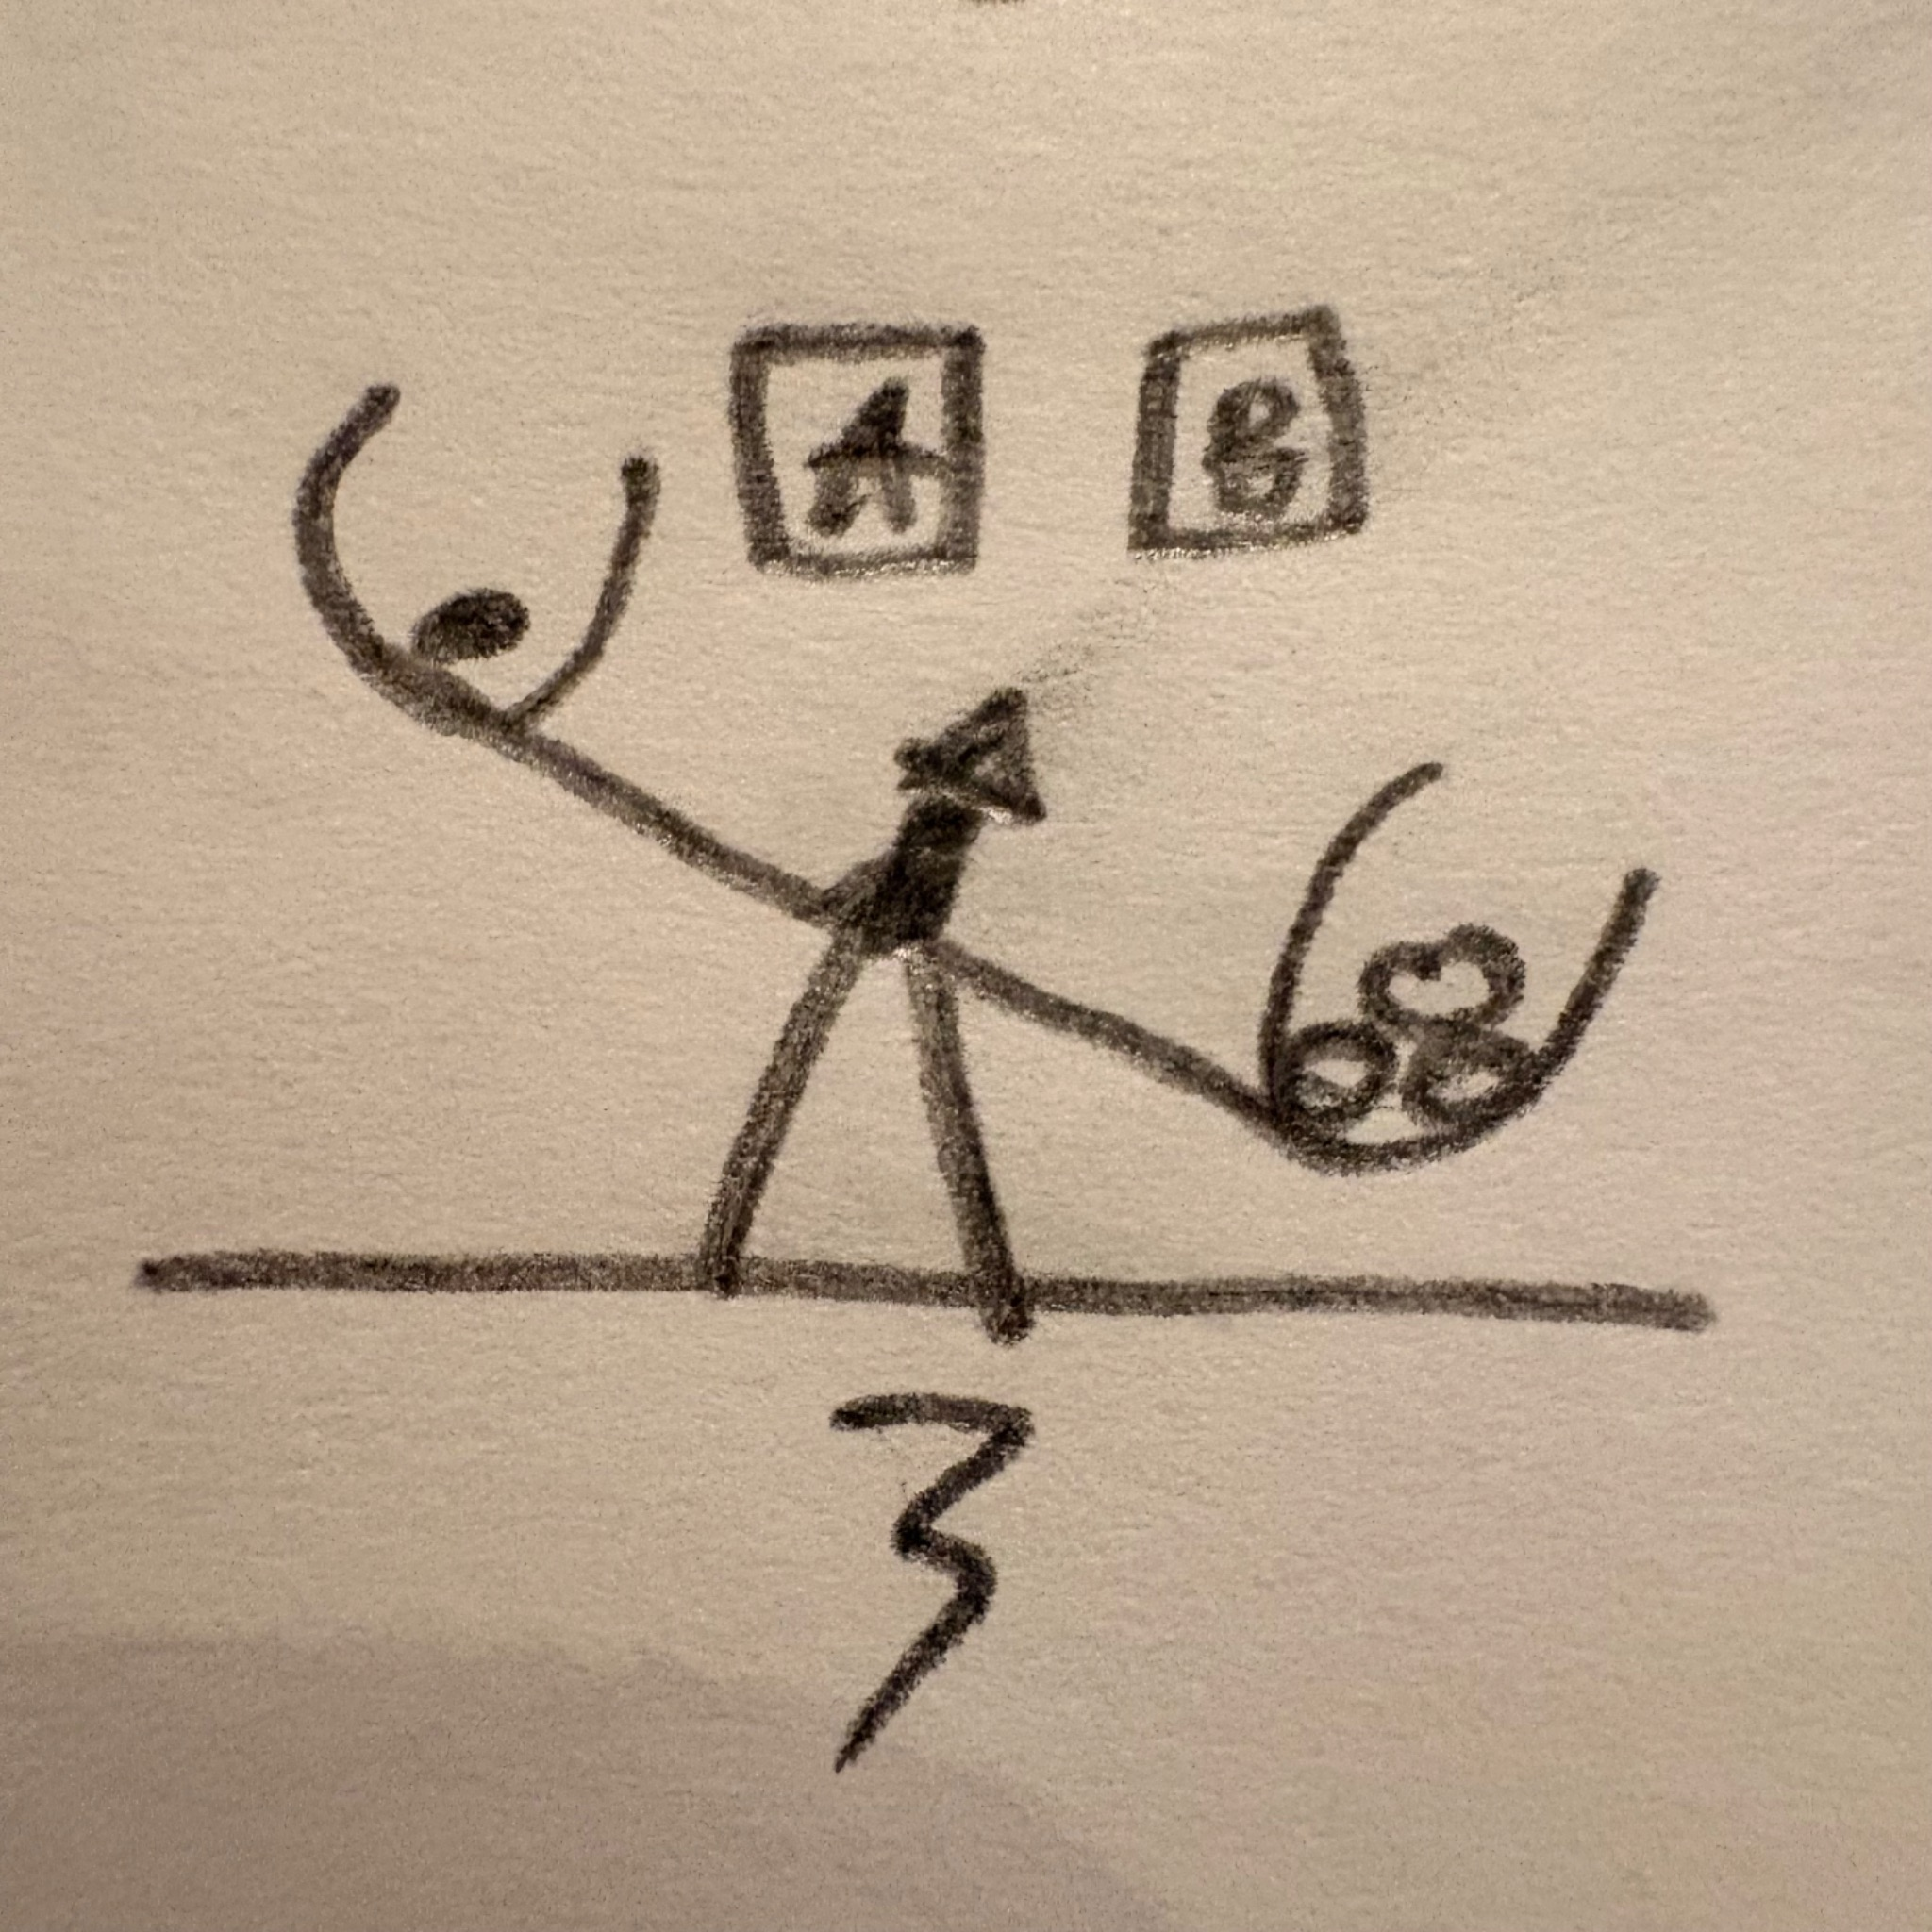 A B
3